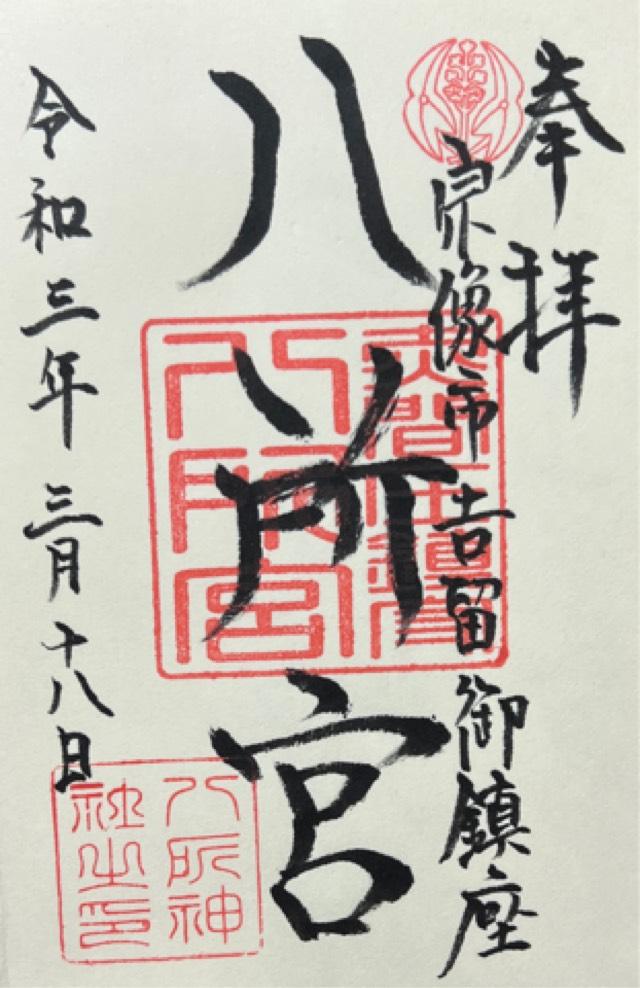 奉拝
宗像市吉留御鎮座
八所宮
令和三年三月十八日
八所宮
八所神
社之印